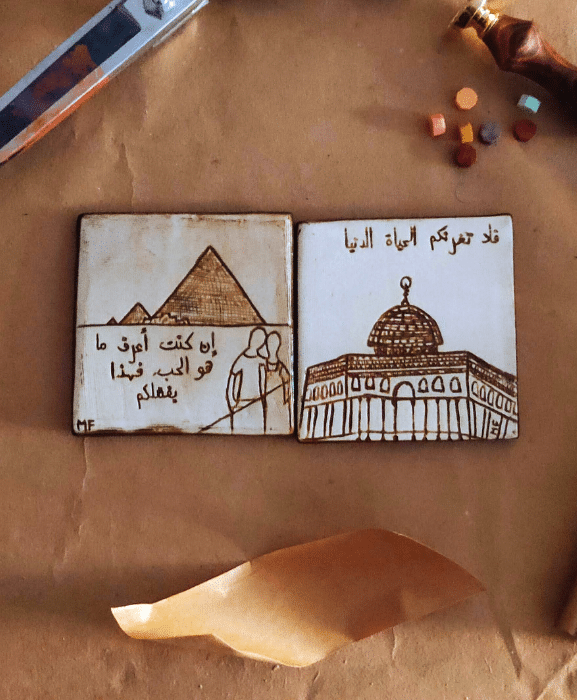 إن كنت أعرف ما
هو الحب، فهذا
بفضلكم
MF
فلا تغرنكم الحياة الدنيا
MF